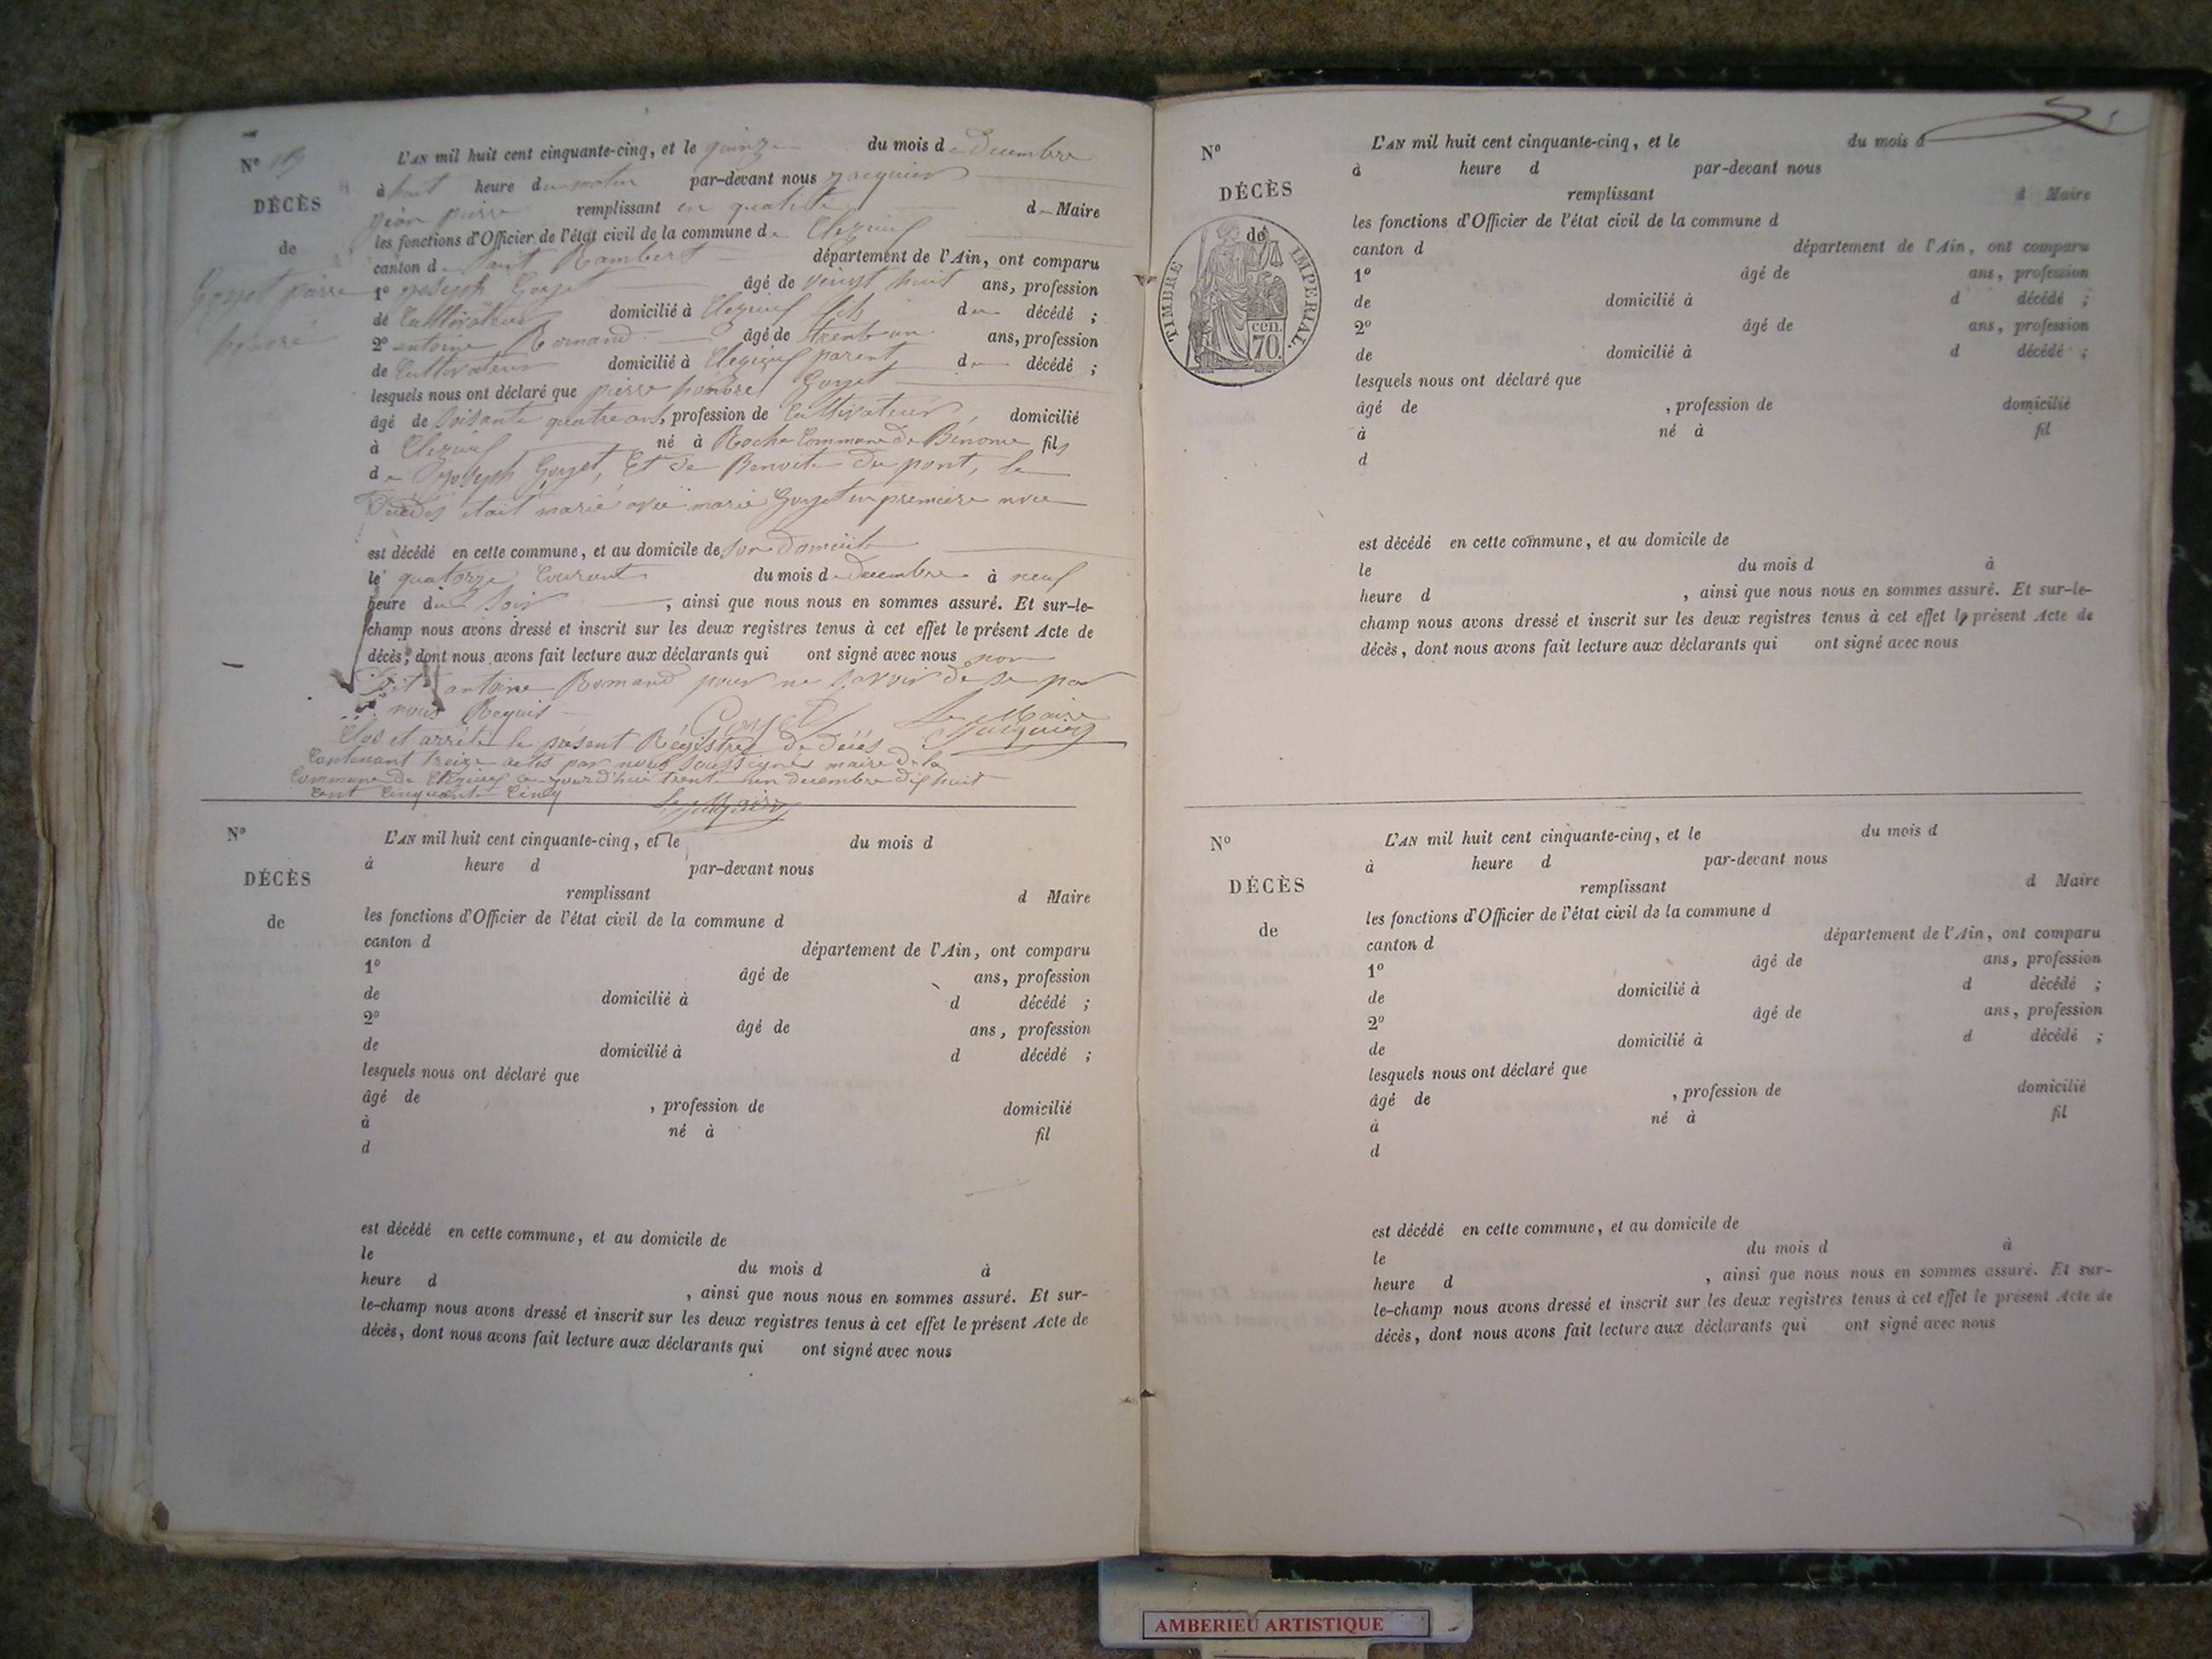 N° 13
DÉCÈS
de
Goyet pierre
honoré
L'AN mil huit cent cinquante-cinq, et le quinze du mois de decembre
à huit heure du matin par-devant nous jacquier
jean pierre remplissant en qualité d Maire
les fonctions d'Officier de l'état civil de la commune de Clezieu
canton de Saint Rambert département de l'Ain, ont comparu
1° joseph Goyet âgé de vingt huit ans, profession
de Cultivateur domicilié à Clezieu fils du décédé ;
2° antoine Romand âgé de trente un ans, profession
de Cultivateur domicilié à Clezieu parent du décédé ;
lesquels nous ont déclaré que pierre honoré Goyet
âgé de soisante quatre ans, profession de Cultivateur, domicilié
à Clezieu né à Roche Commune de Bénonce fils
de joseph Goyet, Et de Benoite Du pont, le
Décédés etait marié avec marie Goyet en premiere noce
est décédé en cette commune, et au domicile de son domicile
le quatorze Courant du mois de decembre à neuf
heure du soir , ainsi que nous nous en sommes assuré. Et sur-le-
champ nous avons dressé et inscrit sur les deux registres tenus à cet effet le présent Acte de
décès, dont nous avons fait lecture aux déclarants qui ont signé avec nous non
antoine Romand pour ne savoir de se par
nous Requis
Goyet Le Maire
Jacquier
Clos et arrêté le présent Régistre de Décès
Contenant treize actes par nous soussignés maire de la
Commune de Clezieu ce jourd'hui trente un decembre dix huit
Cent Cinquante Cinq
N°
DÉCÈS
de
L'AN mil huit cent cinquante-cinq, et le du mois d
à heure d par-devant nous
remplissant d Maire
les fonctions d'Officier de l'état civil de la commune d
canton d département de l'Ain, ont comparu
1° âgé de ans, profession
de domicilié à d décédé ;
2° âgé de ans, profession
de domicilié à d décédé ;
lesquels nous ont déclaré que
âgé de , profession de domicilié
à né à fil
d
est décédé en cette commune, et au domicile de
le du mois d à
heure d , ainsi que nous nous en sommes assuré. Et sur-
le-champ nous avons dressé et inscrit sur les deux registres tenus à cet effet le présent Acte de
décès, dont nous avons fait lecture aux déclarants qui ont signé avec nous
N°
DÉCÈS
de
TIMBRE IMPERIAL.
cen.
70.
L'AN mil huit cent cinquante-cinq, et le du mois d
à heure d par-devant nous
remplissant d Maire
les fonctions d'Officier de l'état civil de la commune d
canton d département de l'Ain, ont comparu
1° âgé de ans, profession
de domicilié à d décédé ;
2° âgé de ans, profession
de domicilié à d décédé ;
lesquels nous ont déclaré que
âgé de , profession de domicilié
à né à fil
d
est décédé en cette commune, et au domicile de
le du mois d à
heure d , ainsi que nous nous en sommes assuré. Et sur-le-
champ nous avons dressé et inscrit sur les deux registres tenus à cet effet le présent Acte de
décès, dont nous avons fait lecture aux déclarants qui ont signé avec nous
N°
DÉCÈS
de
L'AN mil huit cent cinquante-cinq, et le du mois d
à heure d par-devant nous
remplissant d Maire
les fonctions d'Officier de l'état civil de la commune d
canton d département de l'Ain, ont comparu
1° âgé de ans, profession
de domicilié à d décédé ;
2° âgé de ans, profession
de domicilié à d décédé ;
lesquels nous ont déclaré que
âgé de , profession de domicilié
à né à fil
d
est décédé en cette commune, et au domicile de
le du mois d à
heure d , ainsi que nous nous en sommes assuré. Et sur-
le-champ nous avons dressé et inscrit sur les deux registres tenus à cet effet le présent Acte de
décès, dont nous avons fait lecture aux déclarants qui ont signé avec nous
AMBERIEU ARTISTIQUE